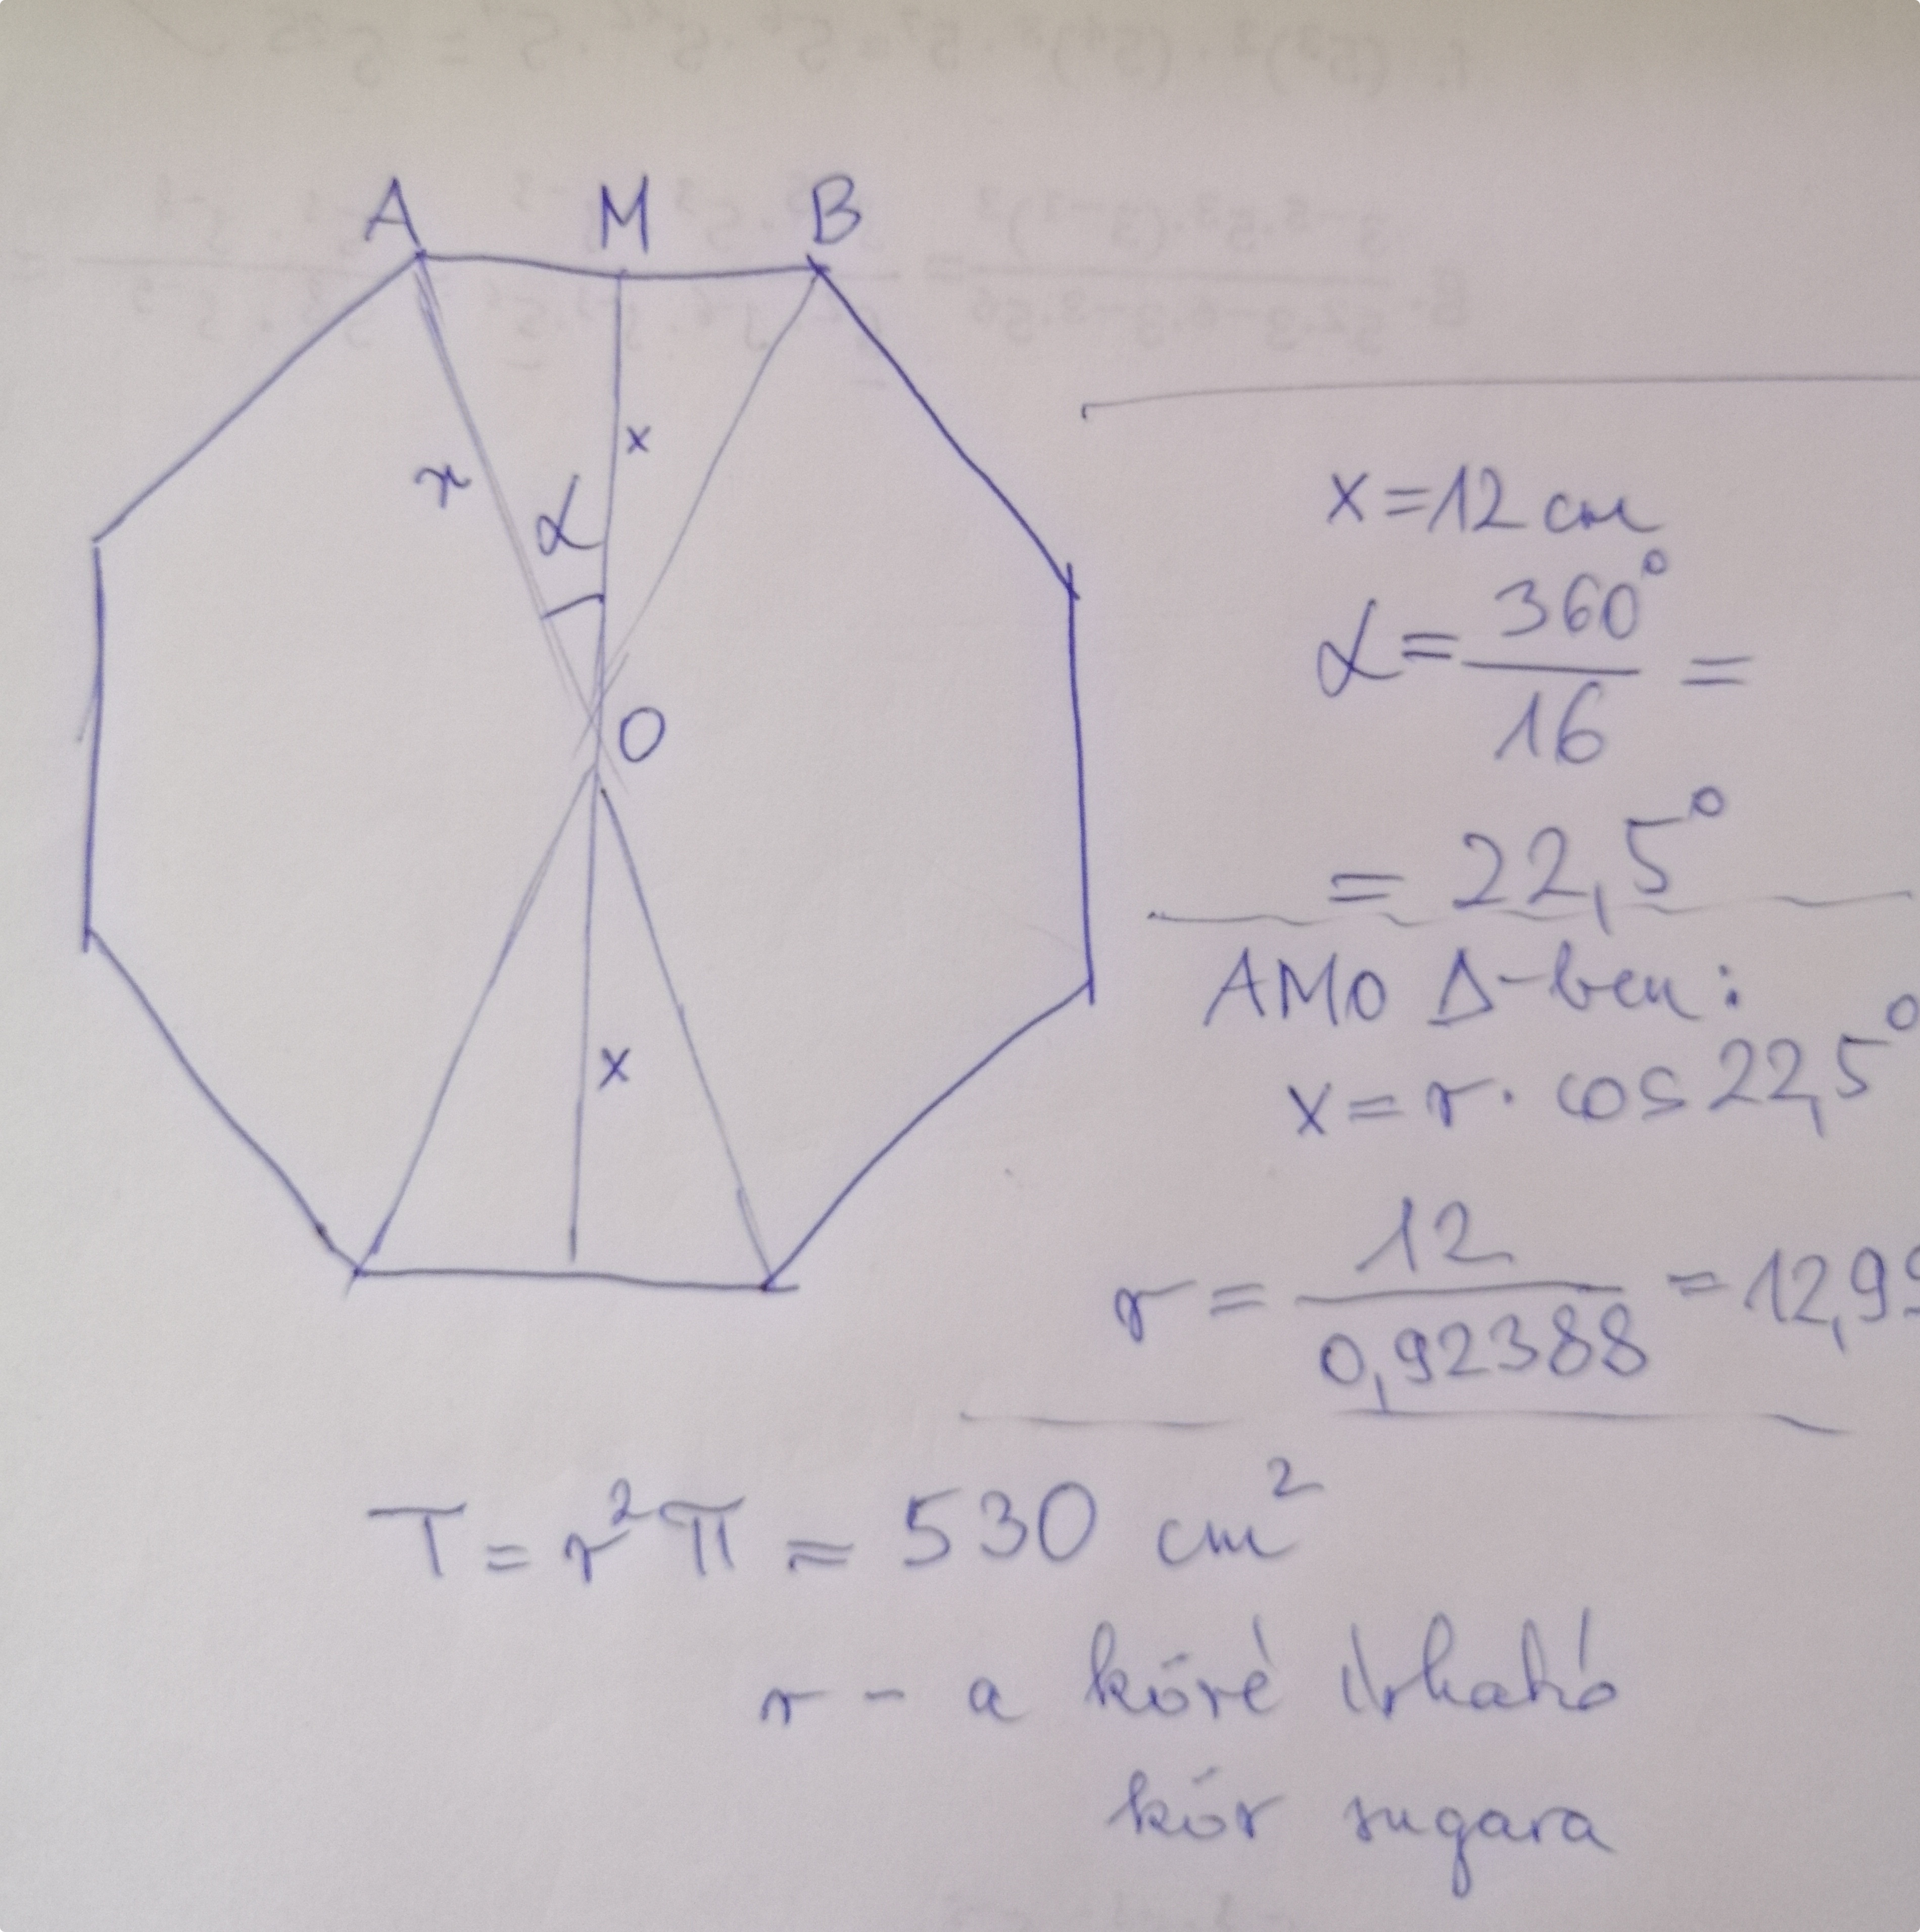 A M B
x
r
α
O
x
x = 12 cm
α = 360° / 16 =
= 22,5°
AMO Δ-ben:
x = r · cos 22,5°
r = 12 / 0,92388 = 12,99
T = r²π ≈ 530 cm²
r - a köré írható
kör sugara